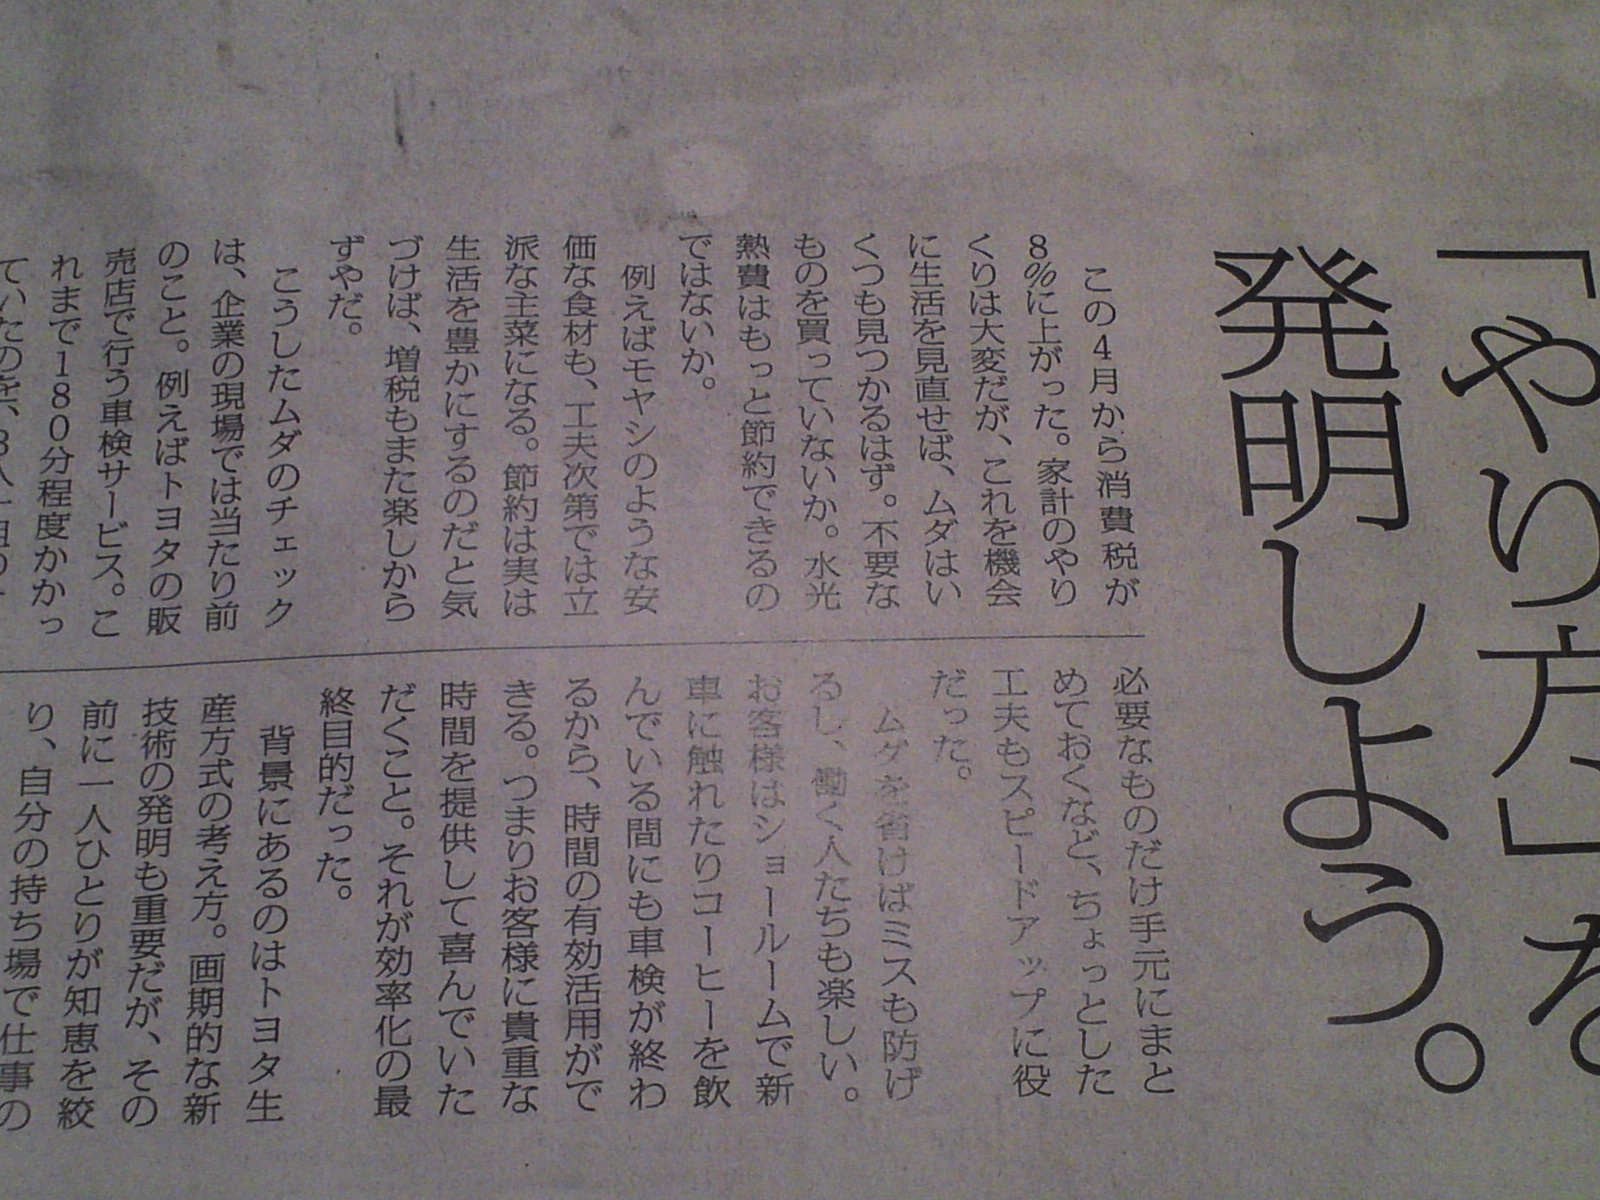 「やり方」を
発明しよう。
この4月から消費税が
8%に上がった。家計のやり
くりは大変だが、これを機会
に生活を見直せば、ムダはい
くつも見つかるはず。不要な
ものを買っていないか。水光
熱費はもっと節約できるの
ではないか。
例えばモヤシのような安
価な食材も、工夫次第では立
派な主菜になる。節約は実は
生活を豊かにするのだと気
づけば、増税もまた楽しから
ずやだ。
こうしたムダのチェック
は、企業の現場では当たり前
のこと。例えばトヨタの販
売店で行う車検サービス。こ
れまで180分程度かかっ
ていたのを、3人一組の
必要なものだけ手元にまと
めておくなど、ちょっとした
工夫もスピードアップに役
だった。
ムダを省けばミスも防げ
るし、働く人たちも楽しい。
お客様はショールームで新
車に触れたりコーヒーを飲
んでいる間にも車検が終わ
るから、時間の有効活用がで
きる。つまりお客様に貴重な
時間を提供して喜んでいた
だくこと。それが効率化の最
終目的だった。
背景にあるのはトヨタ生
産方式の考え方。画期的な新
技術の発明も重要だが、その
前に一人ひとりが知恵を絞
り、自分の持ち場で仕事の